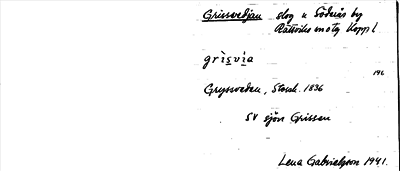 Grissvedjan skog u Söderås by
Rättviks sn otg Koppl.
grìsvìa
196
Gryssveden, Storsk. 1836
SV sjön Grissen
Lena Gabrielsson 1941.